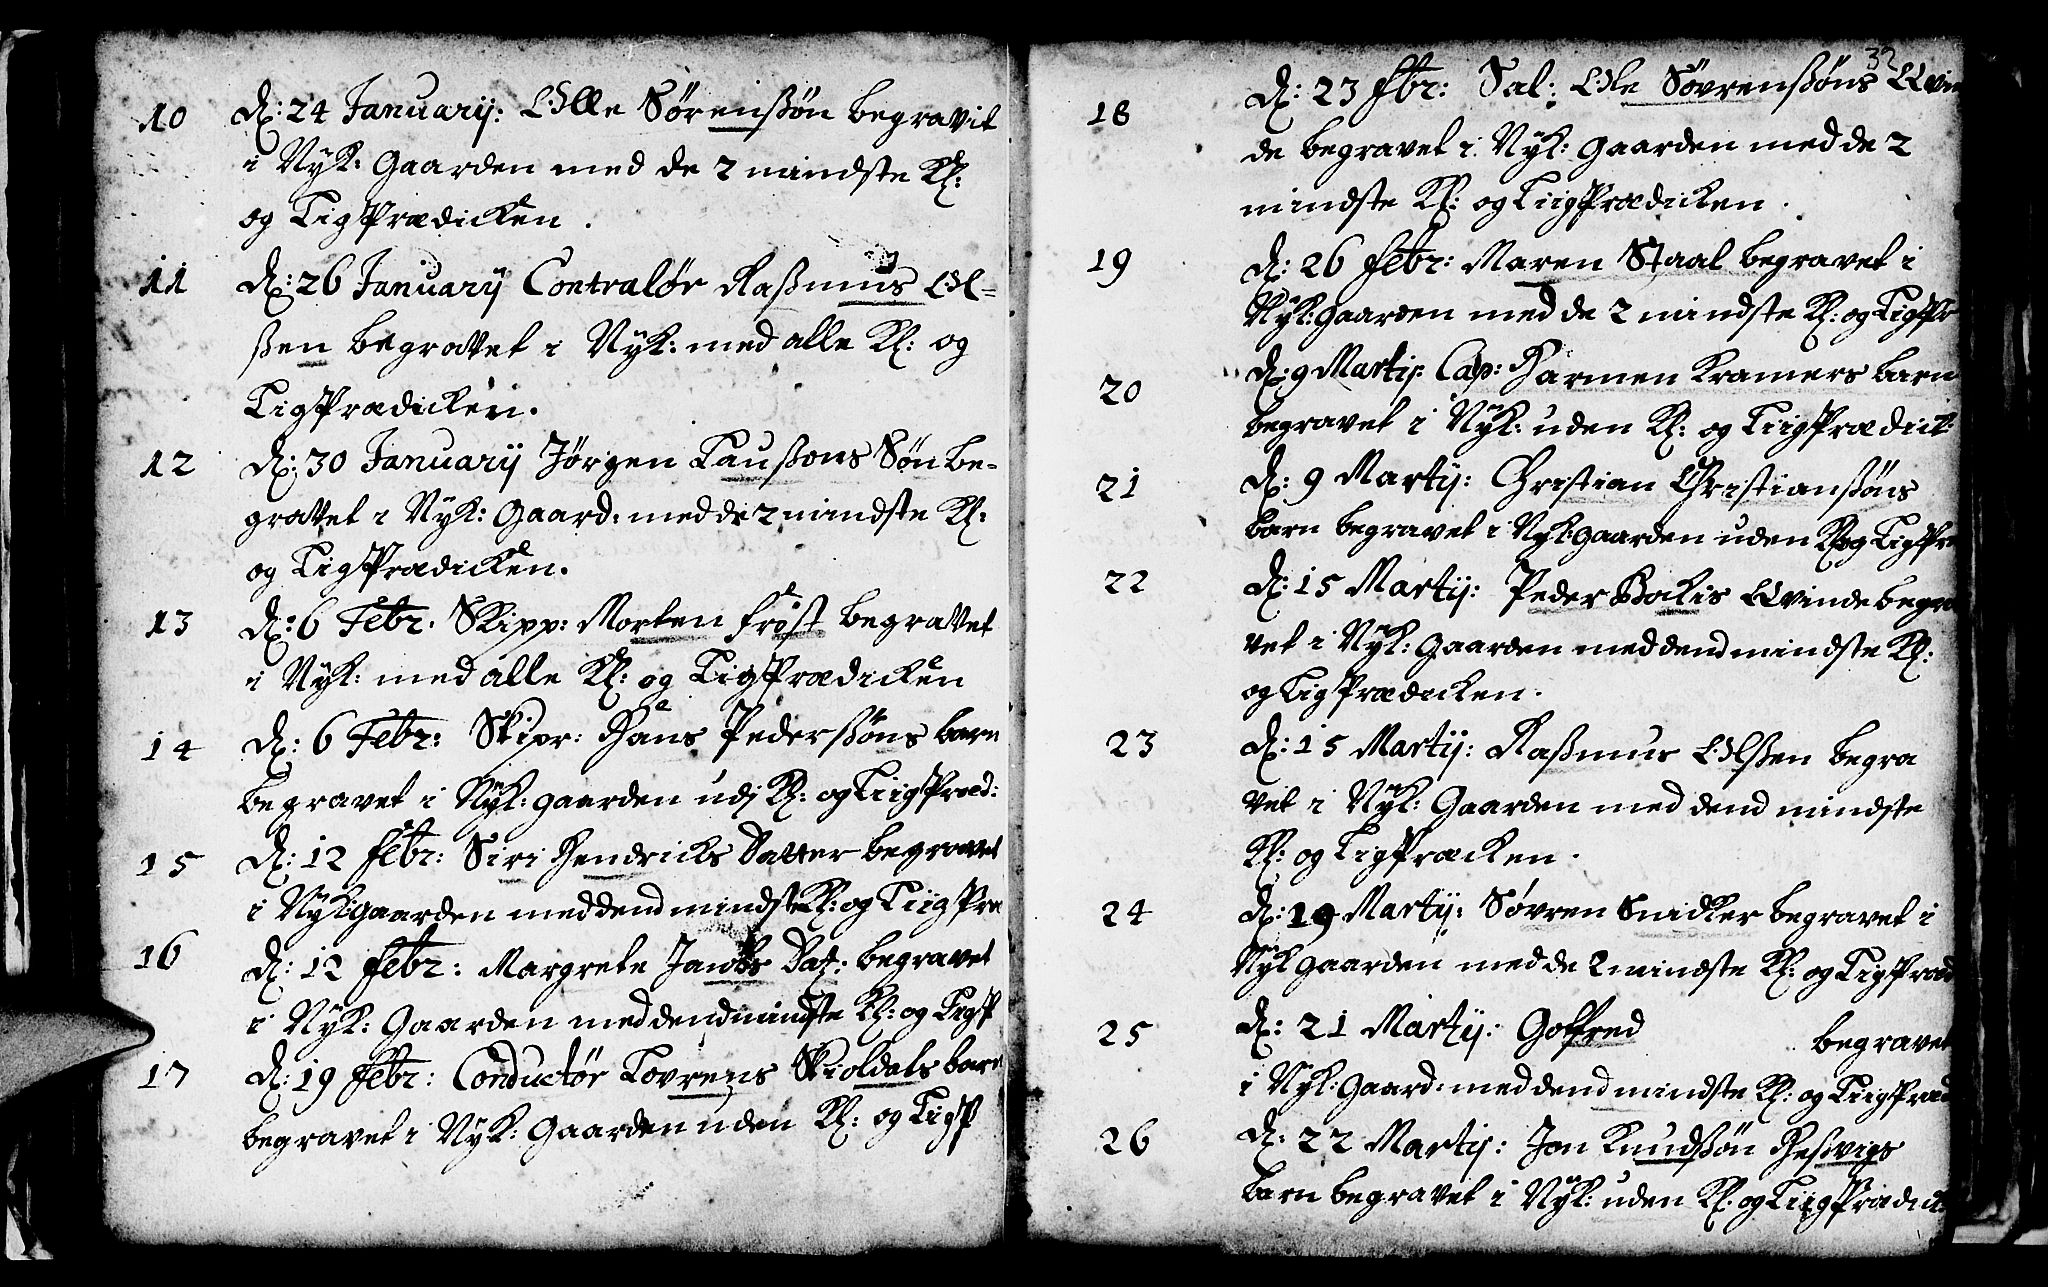 10 d: 24 Januarij: Olle Sørenßøn begravit
i Nyk: Gaarden med de 2 mindste Kl:
og LigPrædicken.
11 d: 26 Januarij Contralør Raßmus Ol-
ßen begravet i Nyk: med alle Kl: og
LigPrædicken.
12 d: 30 Januarij Jørgen Laußons Søn be-
gravet i Nyk: Gaard: med de 2 mindste Kl:
og LigPrædicken.
13 d: 6 Febr. Skipp: Morten Frost begravet
i Nyk: med alle Kl: og LigPrædicken
14 d: 6 Febr: Skipr: Hans Pederßøns barn
begravet i Nyk: gaarden udj Kl: og LiigPræd:
15 d: 12 Febr: Siri Hendricks Datter begravet
i Nyk: gaarden med dend mindste Kl: og LiigPræ
16 d: 12 Febr: Margrete Jacobs Dat: begravet
i Nyk: Gaarden med dend mindste Kl: og LigP
17 d: 19 Febr: Conductør Lovrens Skioldals barn
begravet i Nyk: Gaarden uden Kl: og LigP
32
18 d: 23 Fbr: Sal: Ole Søvrenßøns Qvin
de begravet i Nyk: gaarden med de 2
mindste Kl: og LiigPrædicken.
19 d: 26 Febr: Maren Staal begravet i
Nyk: gaarden med de 2 mindste Kl: og LigPr
20 d: 9 Martij: Cap: Harmen Kramers barn
begravet i Nyk: uden Kl: og LiigPrædict:
21 d: 9 Martij: Christian Christianßøns
barn begravet i Nyk: gaarden uden Kl: og LigPræ
22 d: 15 Martij: Peder Bakis Qvinde begra
vet i Nyk: gaarden med dend mindste Kl:
og LigPrædicken.
23 d: 15 Martij: Raßmus Olßen begra
vet i Nyk: Gaarden med dend mindste
Kl: og LigPræcken.
24 d: 19 Martij: Søvren Snidker begravet i
Nyk gaarden med de 2 mindste Kl: og LigPræd
25 d: 21 Martij: Goffred begravet
i Nyk: Gaard: med dend mindste Kl: og LiigPræd
26 d: 22 Martij: Jon Knudßøn Heßvigs
barn begravet i Nyk: uden Kl: og LiigPrædict: